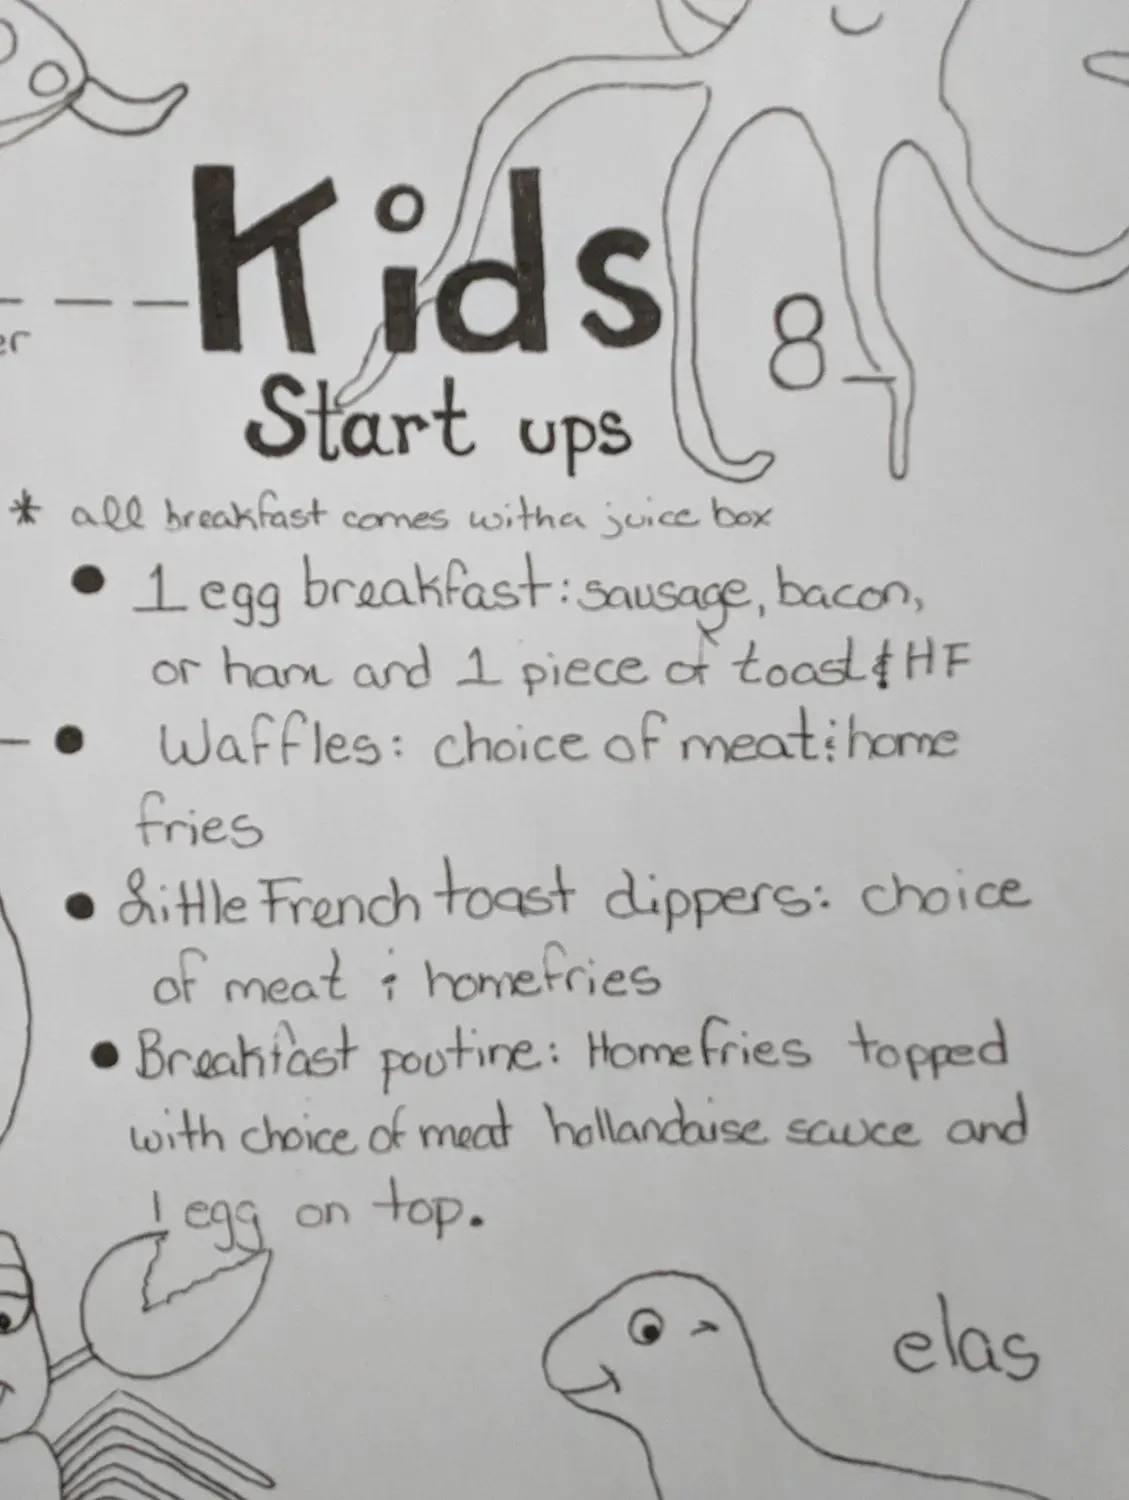 Kids
er
8-
Start ups
* all breakfast comes with a juice box
• 1 egg breakfast: sausage, bacon,
or ham and 1 piece of toast & HF
• Waffles: choice of meat & home
fries
• Little French toast dippers: choice
of meat & homefries
• Breakfast poutine: Homefries topped
with choice of meat hollandaise sauce and
1 egg on top.
elas